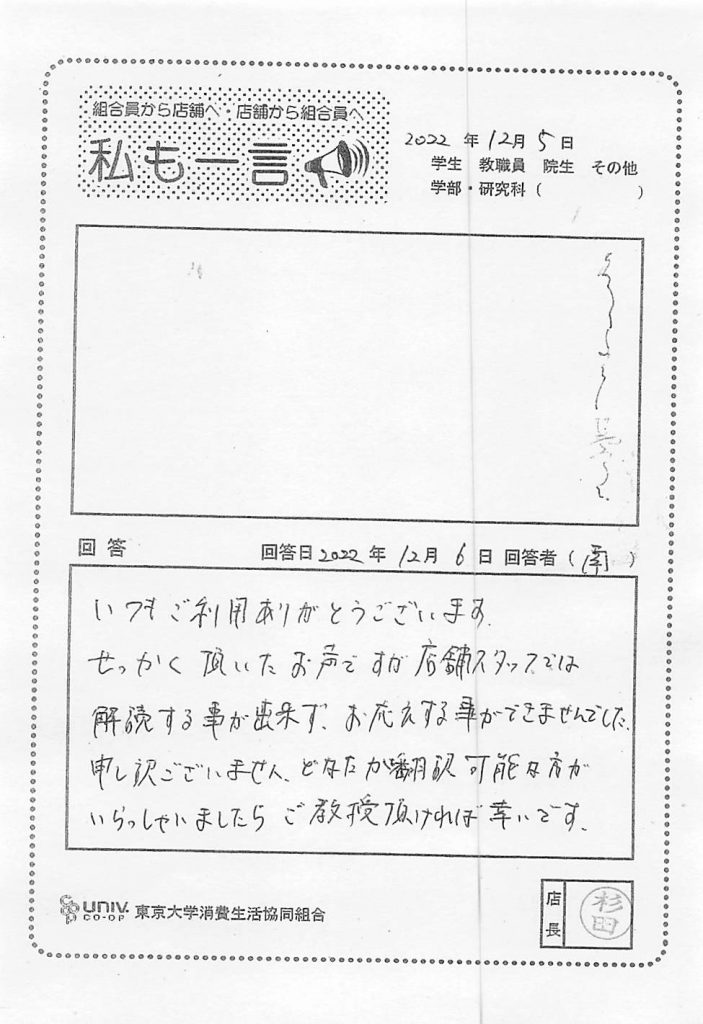 組合員から店舗へ・店舗から組合員へ
私も一言
2022年12月5日
学生 教職員 院生 その他
学部・研究科( )
回答 回答日2022年12月6日 回答者(南)
いつもご利用ありがとうございます。
せっかく頂いたお声ですが店舗スタッフでは
解読する事が出来ず、お応えする事ができませんでした。
申し訳ございません、どなたか翻訳可能な方が
いらっしゃいましたらご教授頂ければ幸いです。
UNIV. CO-OP 東京大学消費生活協同組合
店長 杉田